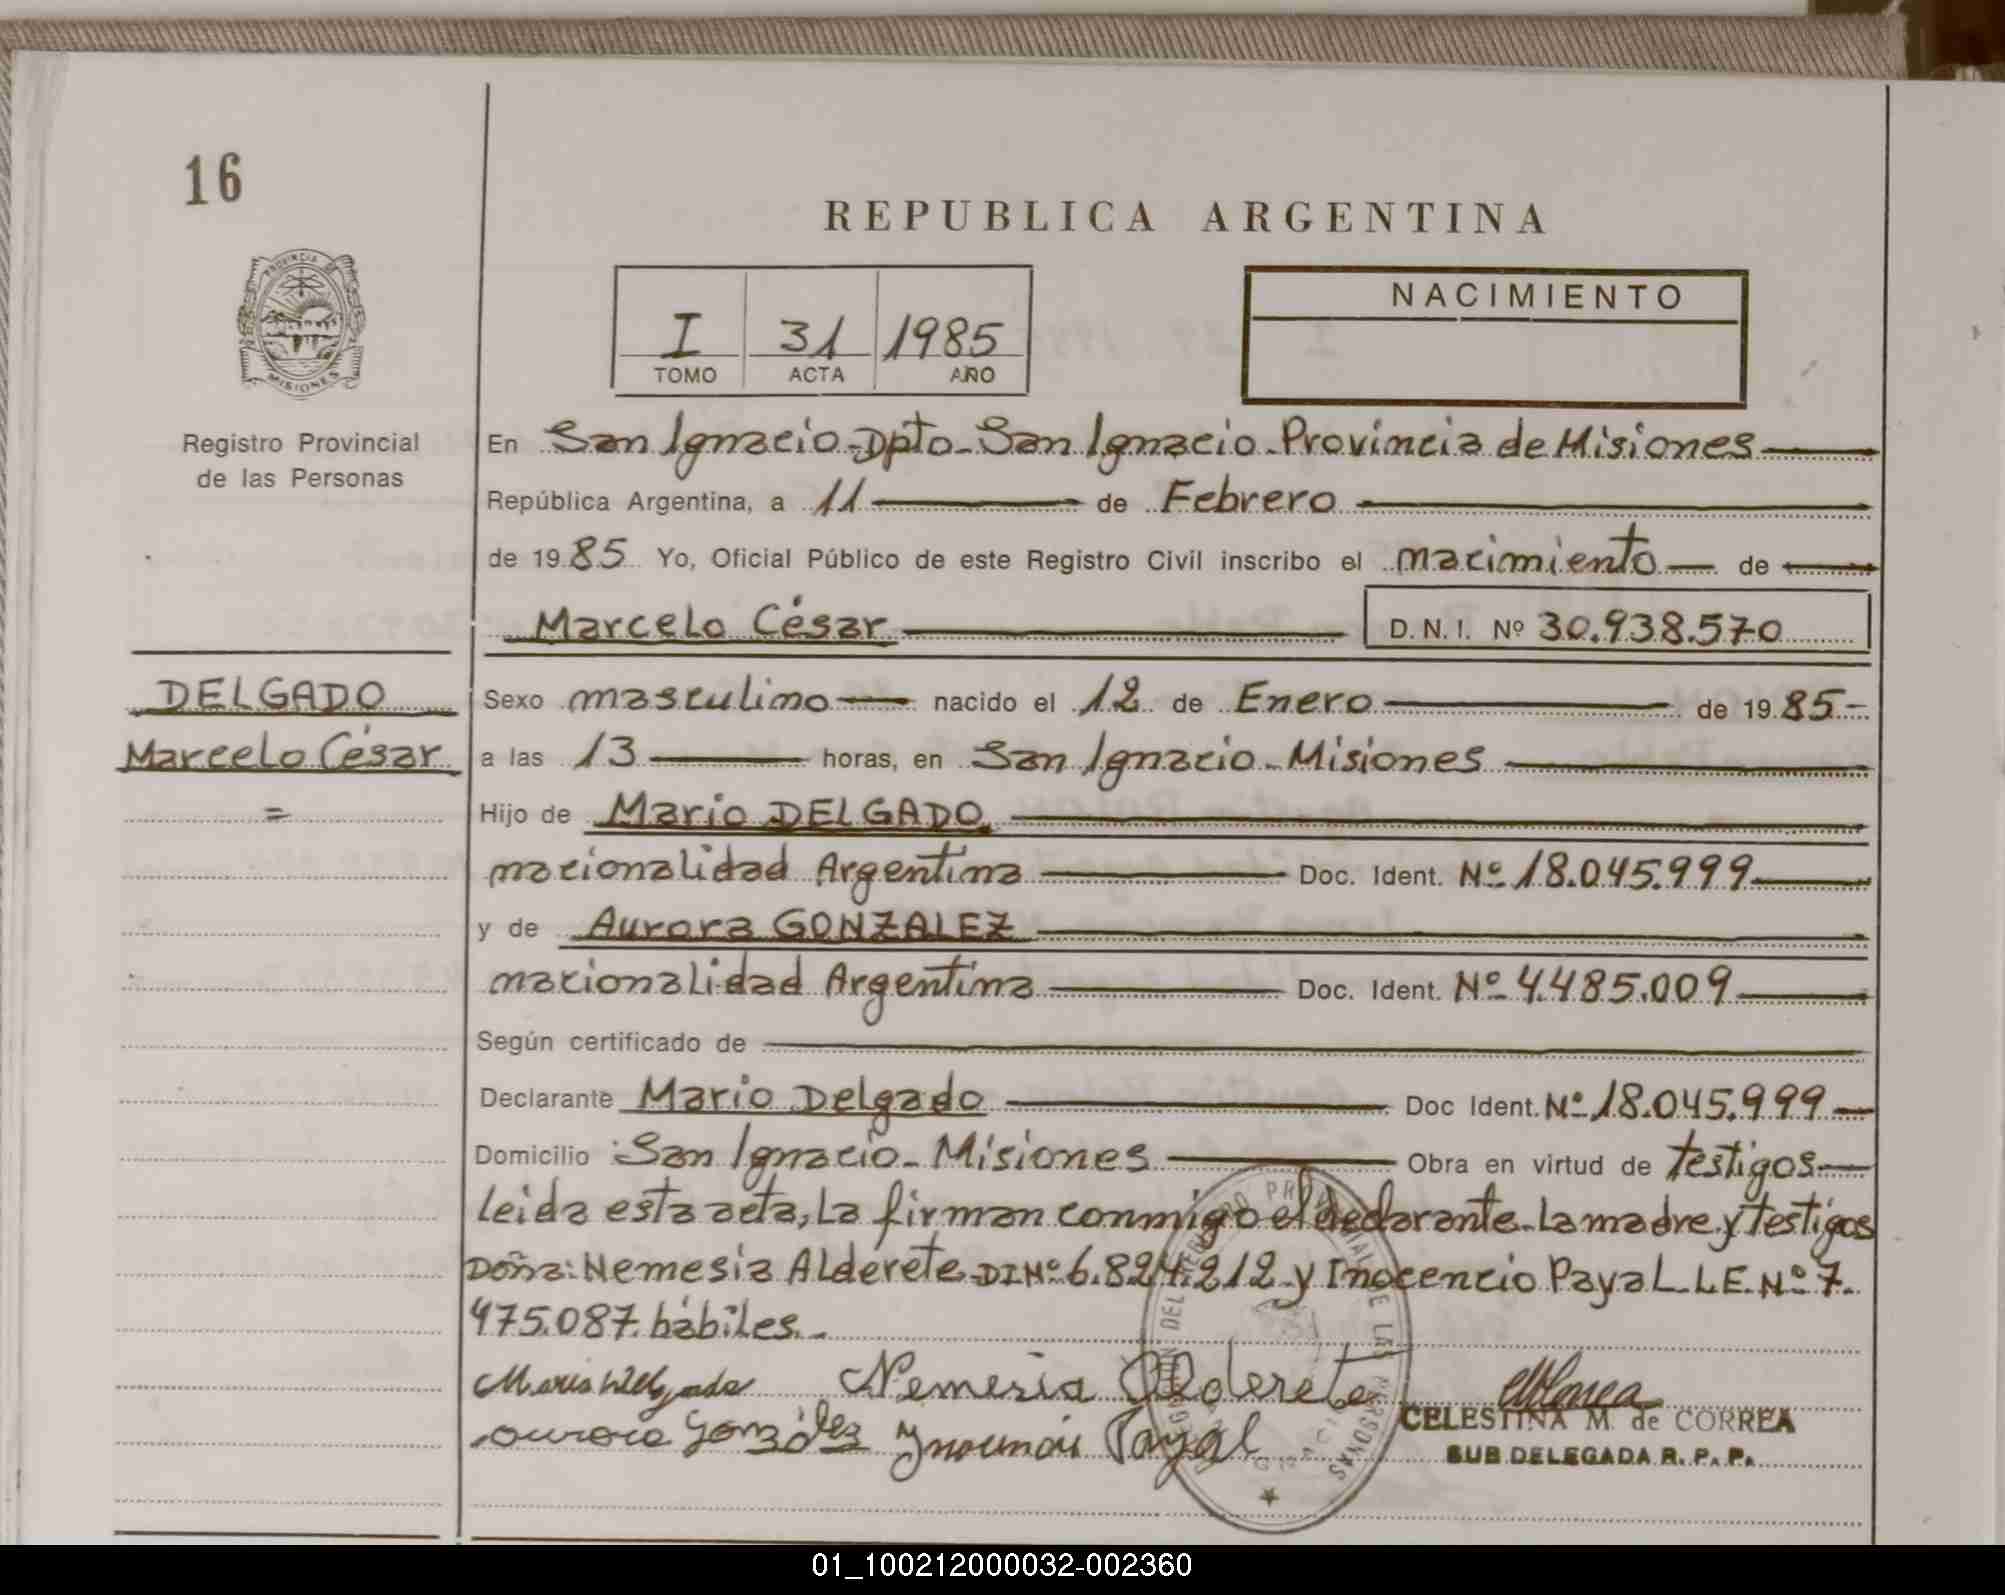 16
REPUBLICA ARGENTINA
PROVINCIA DE
MISIONES
NACIMIENTO
I 31 1985
TOMO ACTA AÑO
Registro Provincial
de las Personas
En San Ignacio-Dpto-San Ignacio-Provincia de Misiones
República Argentina, a 11 de Febrero
de 1985 Yo, Oficial Público de este Registro Civil inscribo el nacimiento de
Marcelo César D.N.I. Nº 30.938.570
DELGADO
Marcelo César
=
Sexo masculino nacido el 12 de Enero de 1985-
a las 13 horas, en San Ignacio-Misiones
Hijo de Mario DELGADO
nacionalidad Argentina Doc. Ident. Nº 18.045.999
y de Aurora GONZALEZ
nacionalidad Argentina Doc. Ident. Nº 4.485.009
Según certificado de
Declarante Mario Delgado Doc Ident. Nº 18.045.999
Domicilio San Ignacio-Misiones Obra en virtud de testigos
leida esta acta, la firman conmigo el declarante-la madre y testigos
Doña: Nemesia Alderete-DI Nº 6.824.212 y Inocencio Payal-L.E. Nº 7.
475.087. hábiles.-
Mario Delgado Nemesia Alderete
Aurora González Inocencio Payal
CELESTINA M. de CORREA
SUB DELEGADA R. P. P.
01_100212000032-002360